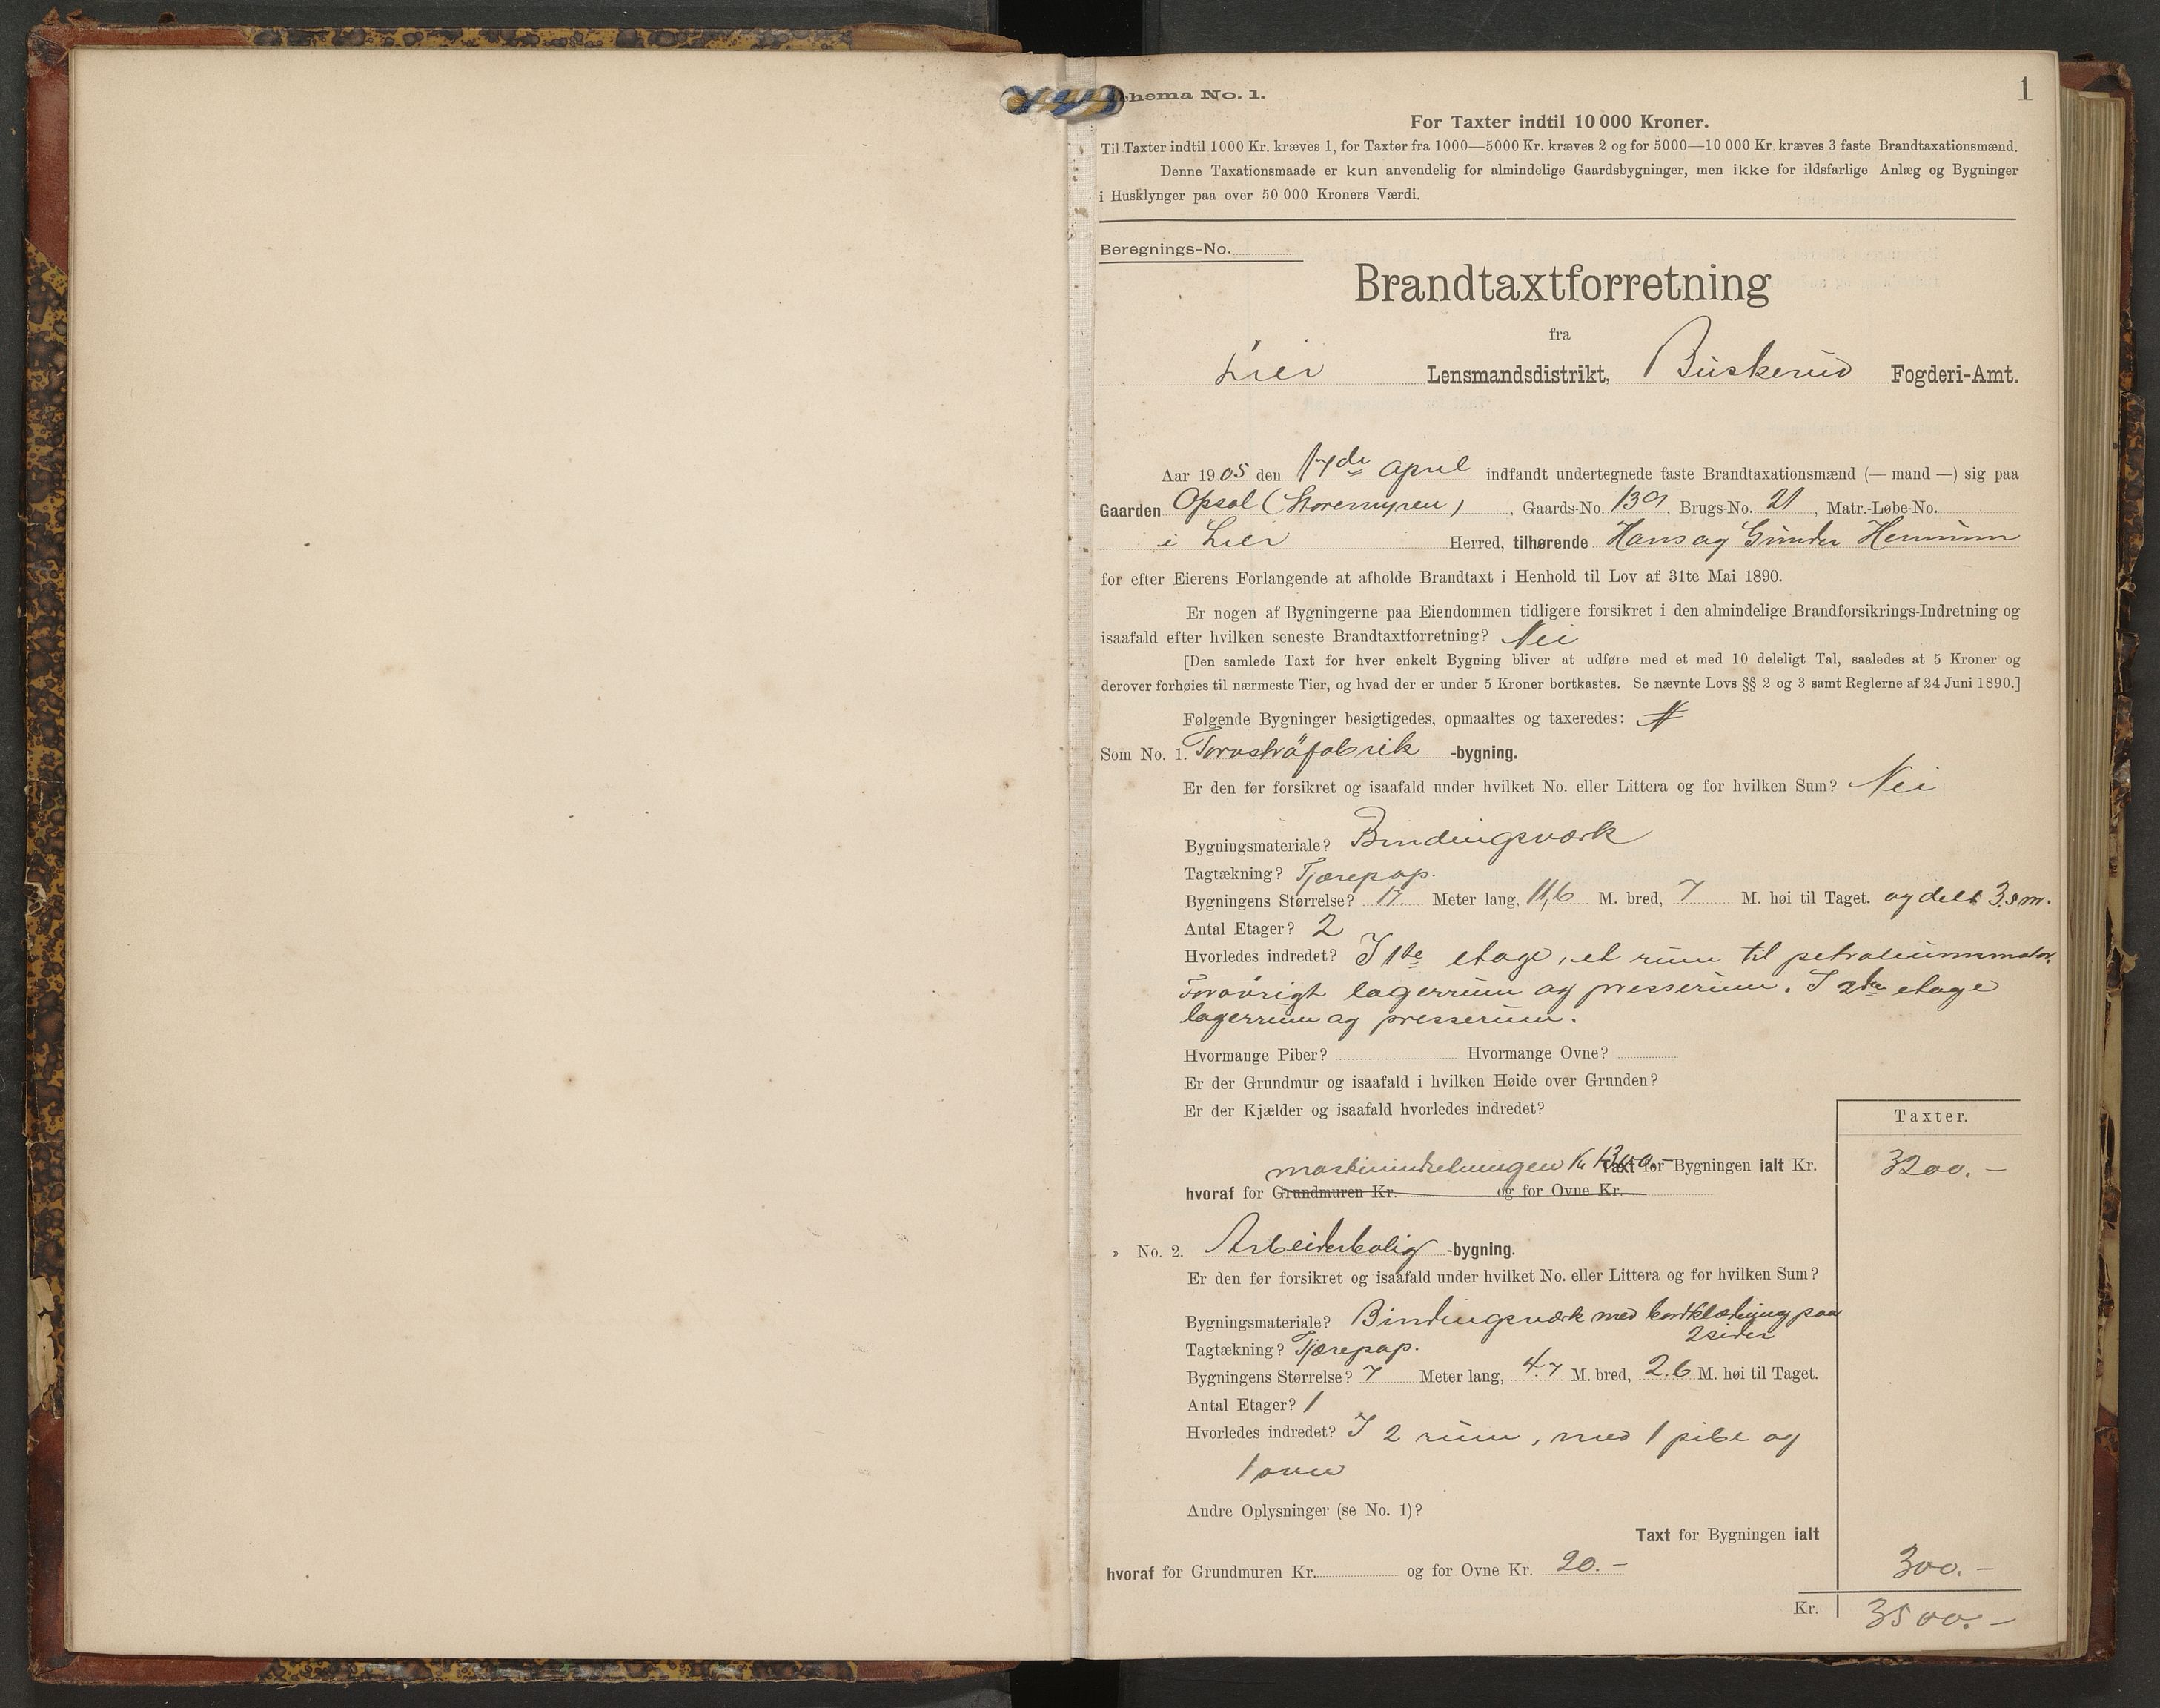 1
Schema No. 1.
For Taxter indtil 10 000 Kroner.
Til Taxter indtil 1000 Kr. kræves 1, for Taxter fra 1000—5000 Kr. kræves 2 og for 5000—10 000 Kr. kræves 3 faste Brandtaxationsmænd.
Denne Taxationsmaade er kun anvendelig for almindelige Gaardsbygninger, men ikke for ildsfarlige Anlæg og Bygninger
i Husklynger paa over 50 000 Kroners Værdi.
Beregnings-No.
Brandtaxtforretning
fra
Lier Lensmandsdistrikt, Buskerud Fogderi-Amt.
Aar 1905 den 17de april indfandt undertegnede faste Brandtaxationsmænd (— mand —) sig paa
Gaarden Opsal (Storemyren), Gaards-No. 139, Brugs-No. 21, Matr.-Løbe-No.
i Lier Herred, tilhørende Hans og Gunder
for efter Eierens Forlangende at afholde Brandtaxt i Henhold til Lov af 31te Mai 1890.
Er nogen af Bygningerne paa Eiendommen tidligere forsikret i den almindelige Brandforsikrings-Indretning og
isaafald efter hvilken seneste Brandtaxtforretning? Nei
[Den samlede Taxt for hver enkelt Bygning bliver at udføre med et med 10 deleligt Tal, saaledes at 5 Kroner og
derover forhøies til nærmeste Tier, og hvad der er under 5 Kroner bortkastes. Se nævnte Lovs §§ 2 og 3 samt Reglerne af 24 Juni 1890.]
Følgende Bygninger besigtigedes, opmaaltes og taxeredes:
Som No. 1. Torvströfabrik -bygning.
Er den før forsikret og isaafald under hvilket No. eller Littera og for hvilken Sum? Nei
Bygningsmateriale? Bindingsværk
Tagtækning? Tjærepap.
Bygningens Størrelse? 17. Meter lang, 11,6 M. bred, 7 M. høi til Taget. og dels 3.5 m.
Antal Etager? 2
Hvorledes indredet? I 1ste etage, et rum til petroleumsmotor.
Forøvrigt lagerrum og presserum. I 2den etage
lagerrum og presserum.
Hvormange Piber? Hvormange Ovne?
Er der Grundmur og isaafald i hvilken Høide over Grunden?
Er der Kjælder og isaafald hvorledes indredet?
Taxter.
maskinindretningen Kr Taxt for Bygningen ialt Kr. 3200.-
hvoraf for Grundmuren Kr. og for Ovne Kr.
» No. 2. Arbeiderbolig -bygning.
Er den før forsikret og isaafald under hvilket No. eller Littera og for hvilken Sum?
Bygningsmateriale? Bindingsværk med bordklædning paa
2 sider
Tagtækning? Tjærepap.
Bygningens Størrelse? 7 Meter lang, 4.7 M. bred, 2.6 M. høi til Taget.
Antal Etager? 1
Hvorledes indredet? I 2 rum, med 1 pibe og
1 ovn
Andre Oplysninger (se No. 1)?
Taxt for Bygningen ialt
hvoraf for Grundmuren Kr. og for Ovne Kr. 20.- 300.-
Kr. 3500.-